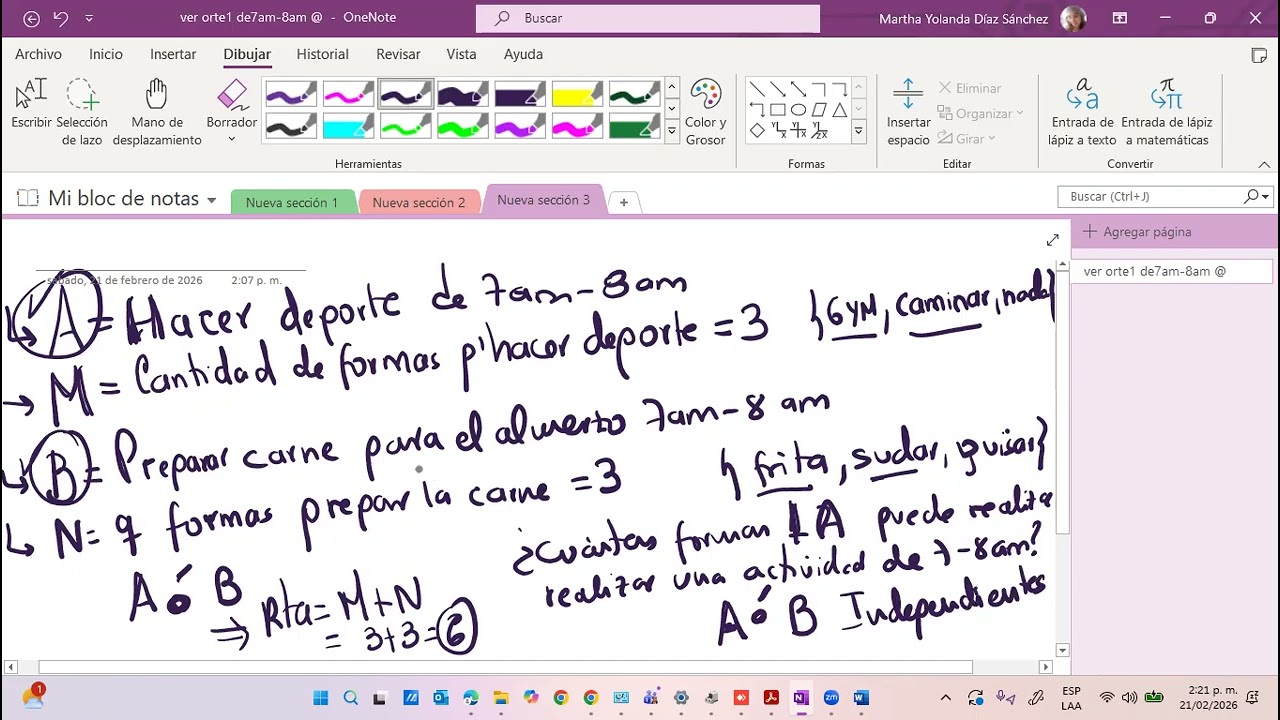 ver orte1 de7am-8am @ - OneNote
Buscar
Martha Yolanda Díaz Sánchez
Archivo Inicio Insertar Dibujar Historial Revisar Vista Ayuda
Escribir
Selección de lazo
Mano de desplazamiento
Borrador
Color y Grosor
Insertar espacio
Eliminar
Organizar
Girar
Entrada de lápiz a texto
Entrada de lápiz a matemáticas
Herramientas Formas Editar Convertir
Mi bloc de notas
Nueva sección 1 Nueva sección 2 Nueva sección 3
Buscar (Ctrl+J)
Agregar página
ver orte1 de7am-8am @
sábado, 21 de febrero de 2026 2:07 p. m.
A = Hacer deporte de 7am-8am
→ M = Cantidad de formas p' hacer deporte = 3 {GYM, caminar, nadar}
B = Preparar carne para el almuerzo 7am-8 am
↳ N = # formas prepar la carne = 3 {frita, sudar, guisar}
¿Cuántas formas A puede realizar
realizar una actividad de 7-8am?
A ó B Independientes
A ó B
⇒ Rta = M+N
= 3+3 = 6
ESP
LAA
2:21 p. m.
21/02/2026
1